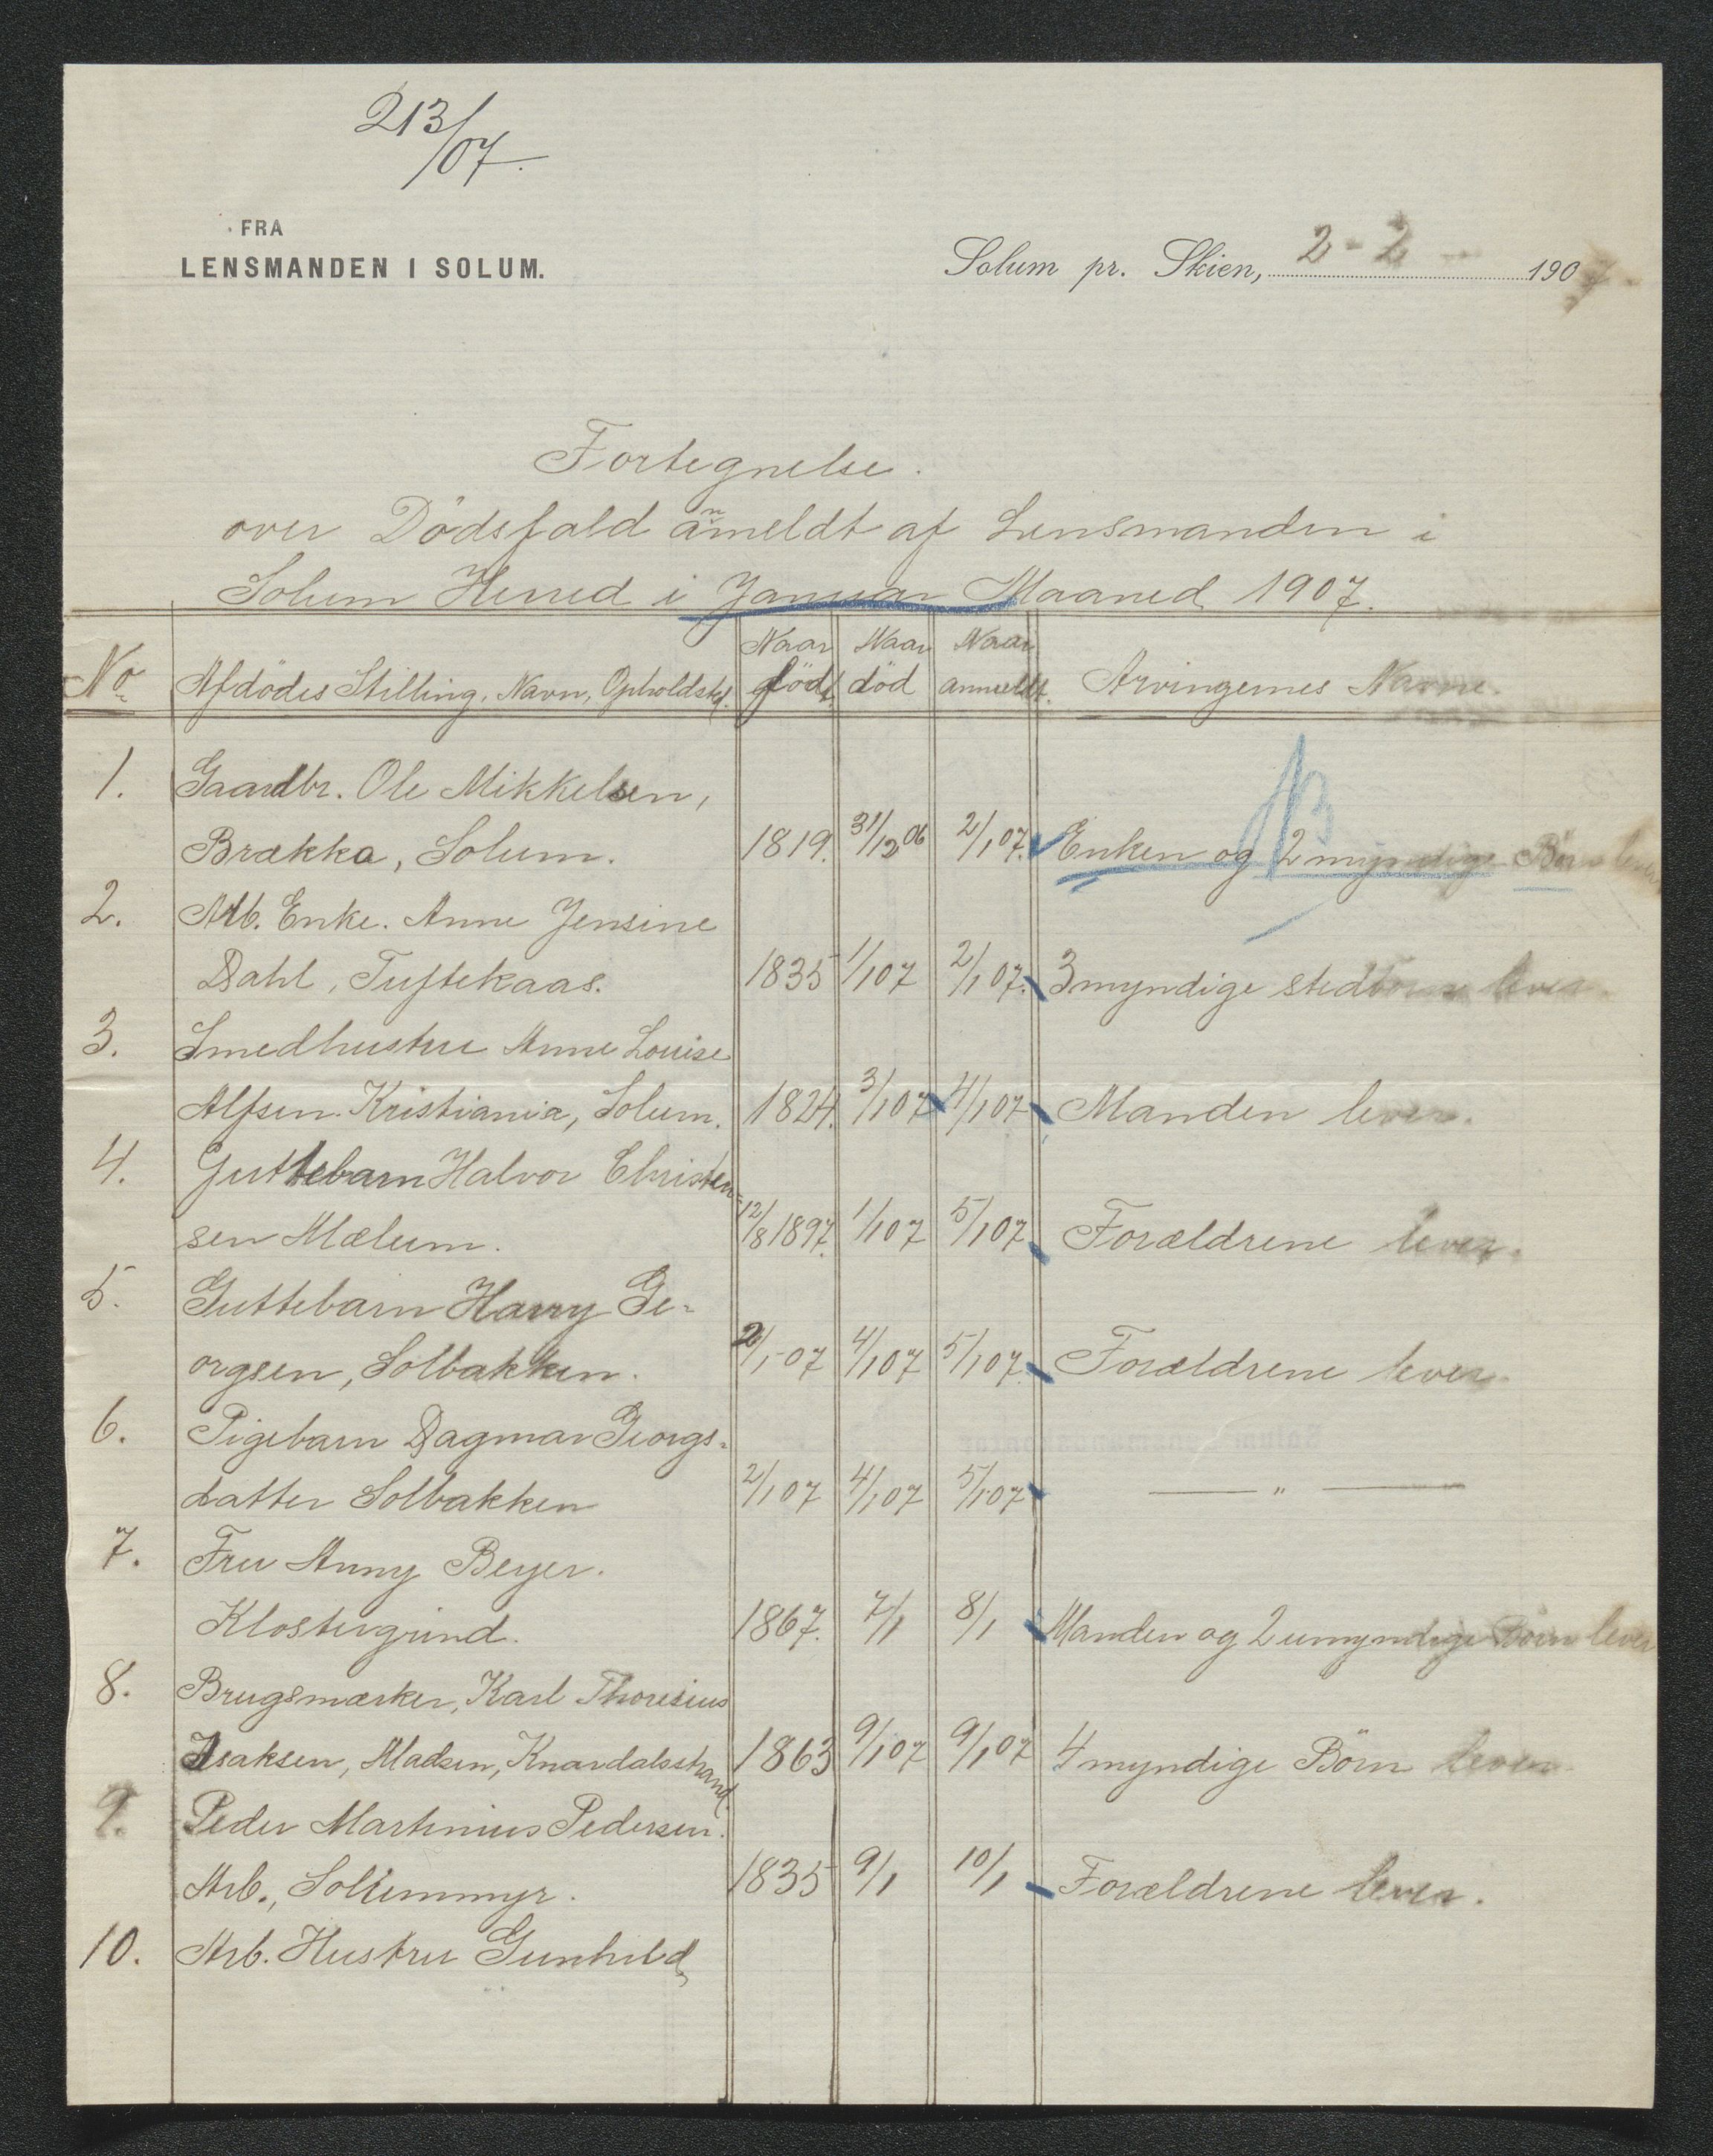 213/07.
FRA
LENSMANDEN I SOLUM.
Solum pr. Skien, 2-2- 1907.
Fortegnelse.
over Dödsfald anmeldt af Lensmanden i
Solum Herred i Januar Maaned 1907.
No Afdödes Stilling, Navn, Opholdsted. Naar födt Naar död Naar anmeldt. Arvingernes Navne.
1. Gaardbr. Ole Mikkelsen,
Brækka, Solum. 1819. 31/12 06 2/1 07. Enken og 2 myndige Börn lever
2. Arb. Enke. Anne Jensine
Dahl, Tuftekaas. 1835 1/1 07 2/1 07. 3 myndige stedbörn lever.
3. Smedhustru Anne Louise
Alfsen Kristiania, Solum. 1824. 3/1 07 4/1 07 Manden lever.
4. Guttebarn Halvor Christen-
sen Mælum. 12/8 1897. 1/1 07 5/1 07 Forældrene lever.
5. Guttebarn Harry Ge-
orgsen, Solbakken. 2/1-07 4/1 07 5/1 07. Forældrene lever.
6. Pigebarn Dagmar Georgs-
datter Solbakken 2/1 07 4/1 07 5/1 07 — " —
7. Fru Anny Beyer.
Klostergrund. 1867. 7/1 8/1 Manden og 2 umyndige Börn lever
8. Brugsmærker, Karl Thoresius
Isaksen, Kladsen, Knardalsstrand. 1863 9/1 07 9/1 07 4 myndige Börn lever.
9. Peder Martinius Pedersen.
Arb., Solummyr. 1835 9/1 10/1 Forældrene lever.
10. Arb. Hustru Gunhild